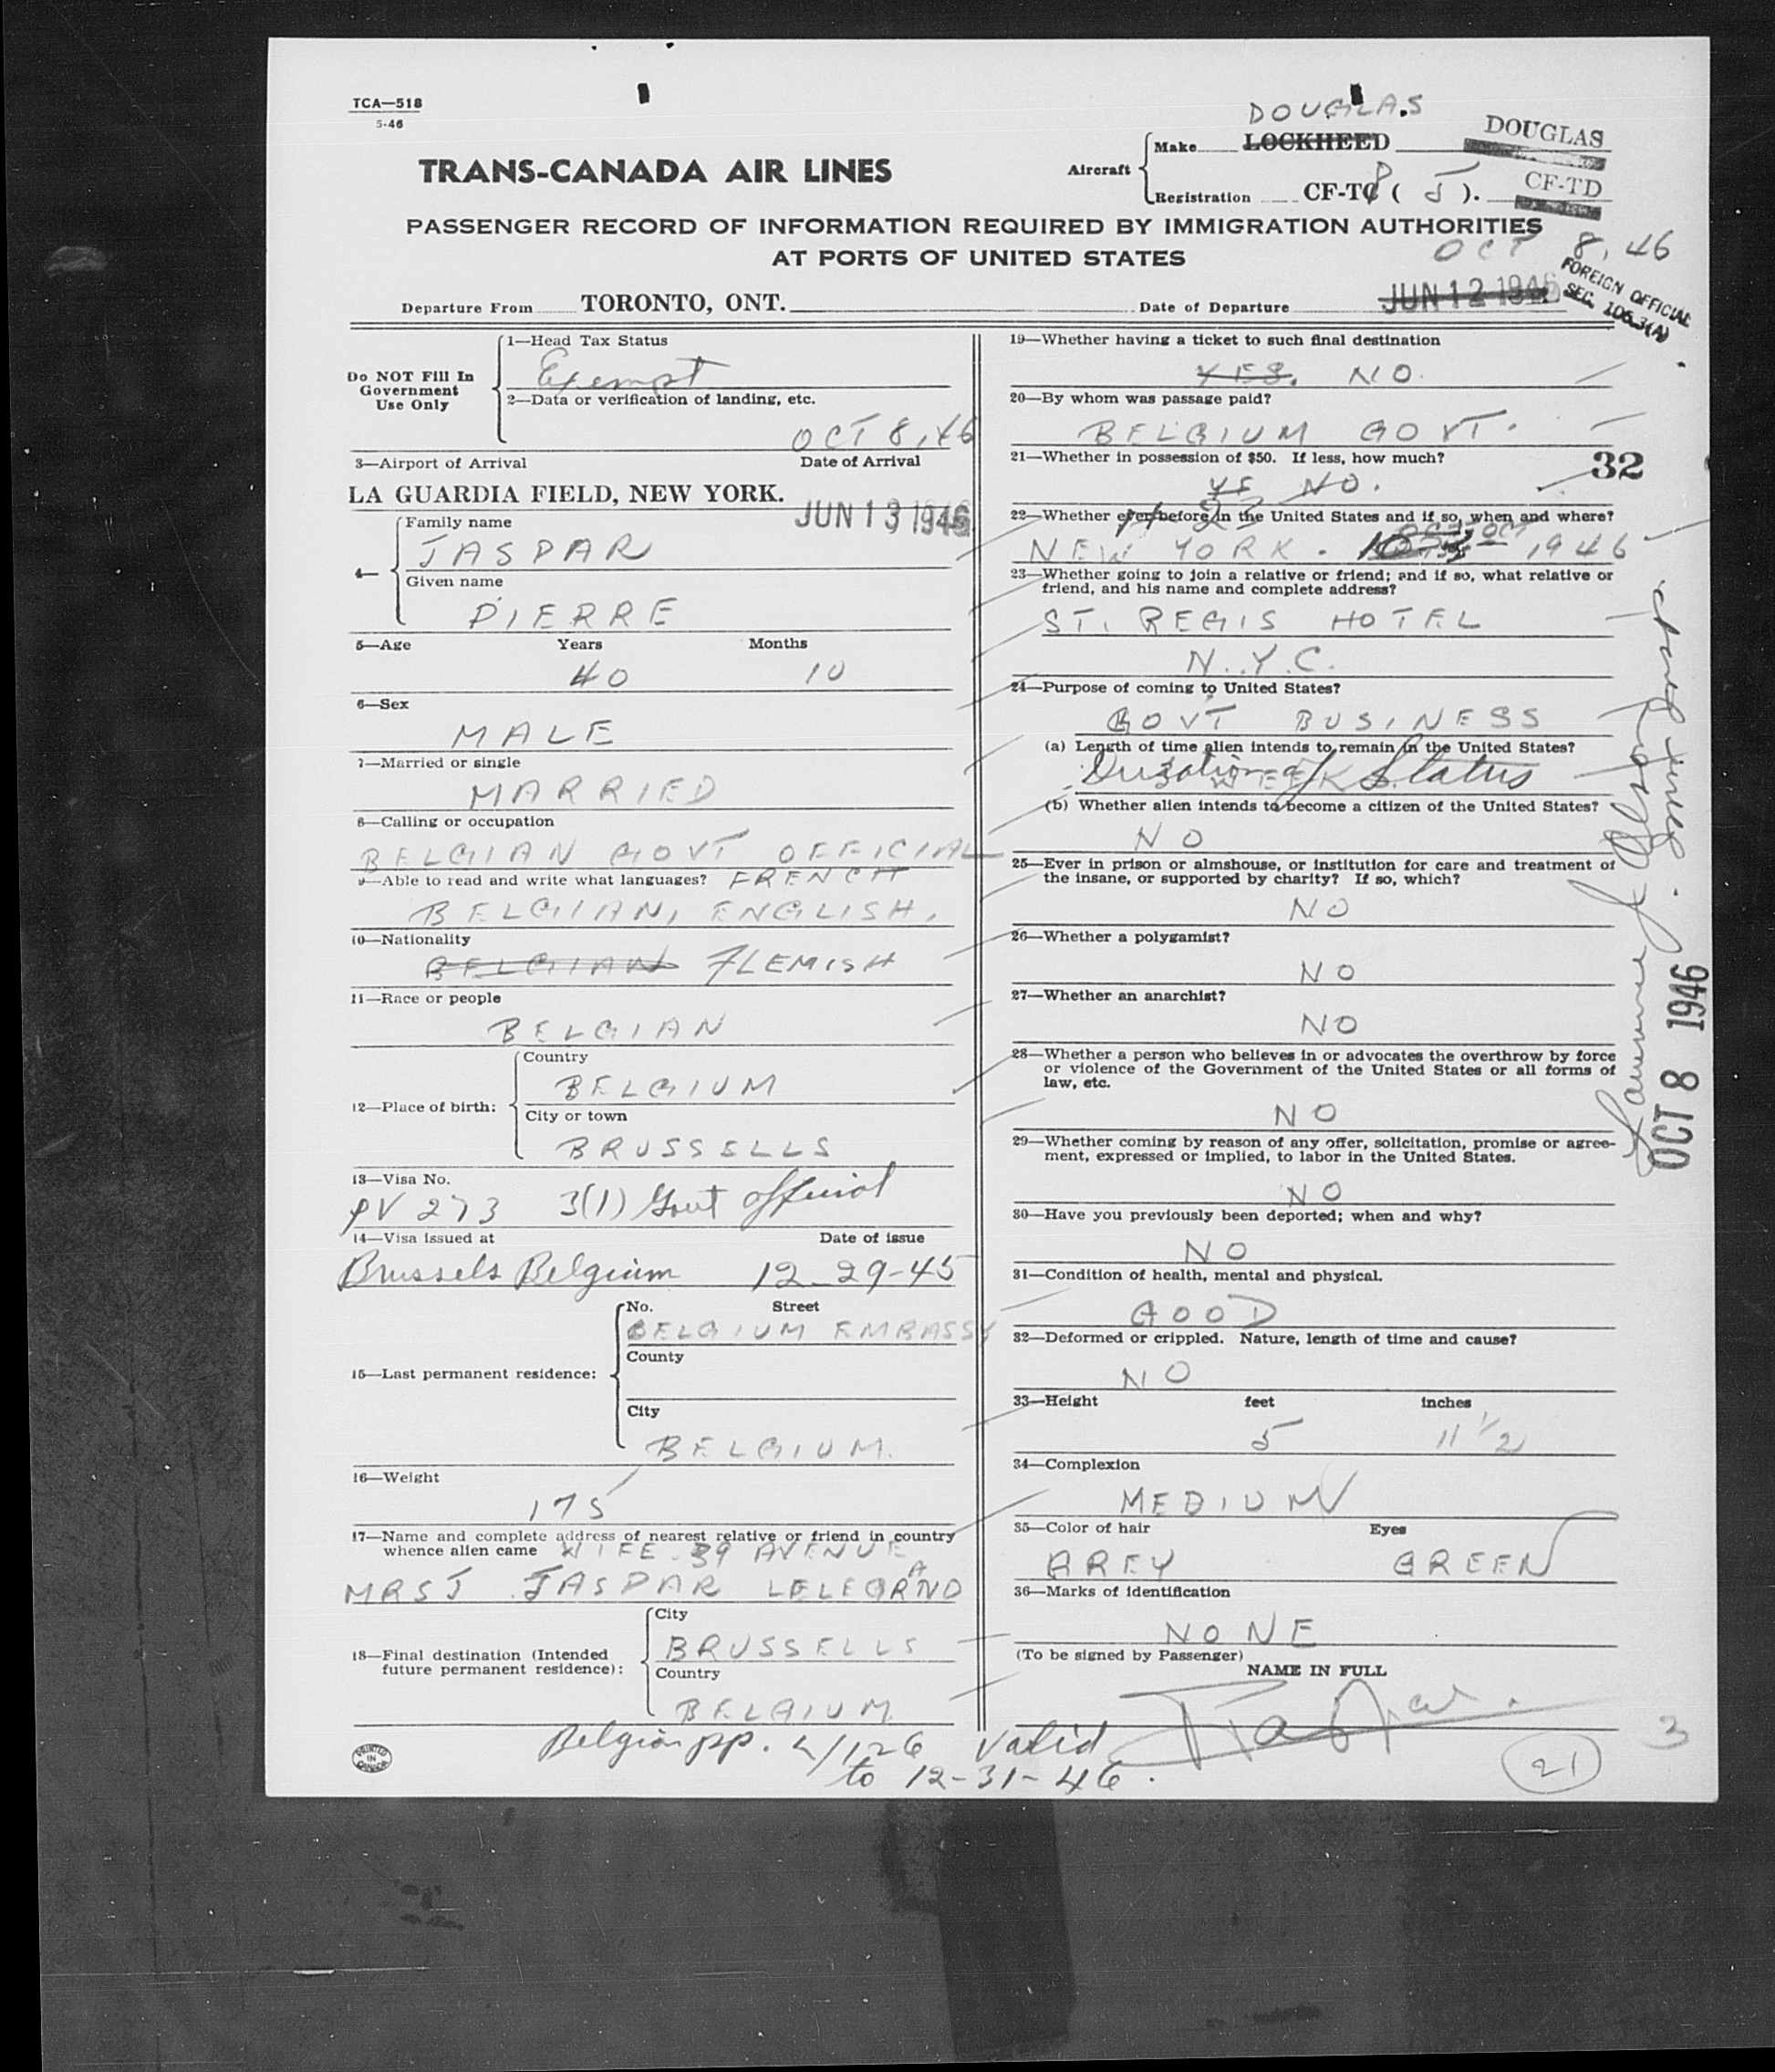 TCA—518
5-46
DOUGLAS
TRANS-CANADA AIR LINES
Aircraft
Make LOCKHEED
DOUGLAS
Registration CF-T ( 5 ).
CF-TD
PASSENGER RECORD OF INFORMATION REQUIRED BY IMMIGRATION AUTHORITIES
AT PORTS OF UNITED STATES
OCT 8, 46
FOREIGN OFFICIAL
SEC. 106.3(A)
Departure From TORONTO, ONT.
Date of Departure JUN 12 1946
Do NOT Fill In
Government
Use Only
1—Head Tax Status
Exempt
2—Data or verification of landing, etc.
OCT 8, 46
3—Airport of Arrival
Date of Arrival
LA GUARDIA FIELD, NEW YORK.
JUN 13 1946
4—
Family name
JASPAR
Given name
PIERRE
5—Age Years Months
40 10
6—Sex
MALE
7—Married or single
MARRIED
8—Calling or occupation
BELGIAN GOVT OFFICIAL
9—Able to read and write what languages? FRENCH
BELGIAN, ENGLISH,
10—Nationality
BELGIAN FLEMISH
11—Race or people
BELGIAN
12—Place of birth:
Country
BELGIUM
City or town
BRUSSELLS
13—Visa No.
PV 273 3(1) Govt official
14—Visa issued at Date of issue
Brussels Belgium 12-29-45
15—Last permanent residence:
No. Street
BELGIUM EMBASSY
County
City
BELGIUM.
16—Weight
175
17—Name and complete address of nearest relative or friend in country
whence alien came WIFE 39 AVENUE
MRS J JASPAR LELEGRAND
18—Final destination (Intended
future permanent residence):
City
BRUSSELLS
Country
BELGIUM
Belgian pp. 4/126 valid
to 12-31-46.
PRINTED
IN
CANADA
19—Whether having a ticket to such final destination
YES. NO.
20—By whom was passage paid?
BELGIUM GOVT.
21—Whether in possession of $50. If less, how much?
32
NO.
22—Whether ever before in the United States and if so, when and where?
NEW YORK. OCT 1946
23—Whether going to join a relative or friend; and if so, what relative or
friend, and his name and complete address?
ST. REGIS HOTEL
N.Y.C.
24—Purpose of coming to United States?
GOVT BUSINESS
(a) Length of time alien intends to remain in the United States?
Duration of Status
WEEKS
(b) Whether alien intends to become a citizen of the United States?
NO
25—Ever in prison or almshouse, or institution for care and treatment of
the insane, or supported by charity? If so, which?
NO
26—Whether a polygamist?
NO
27—Whether an anarchist?
NO
28—Whether a person who believes in or advocates the overthrow by force
or violence of the Government of the United States or all forms of
law, etc.
NO
29—Whether coming by reason of any offer, solicitation, promise or agree-
ment, expressed or implied, to labor in the United States.
NO
30—Have you previously been deported; when and why?
NO
31—Condition of health, mental and physical.
GOOD
32—Deformed or crippled. Nature, length of time and cause?
NO
33—Height feet inches
5 11 1/2
34—Complexion
MEDIUM
35—Color of hair Eyes
GREY GREEN
36—Marks of identification
NONE
(To be signed by Passenger)
NAME IN FULL
21
3
Lawrence J. Olson
Immig. Inspt.
OCT 8 1946